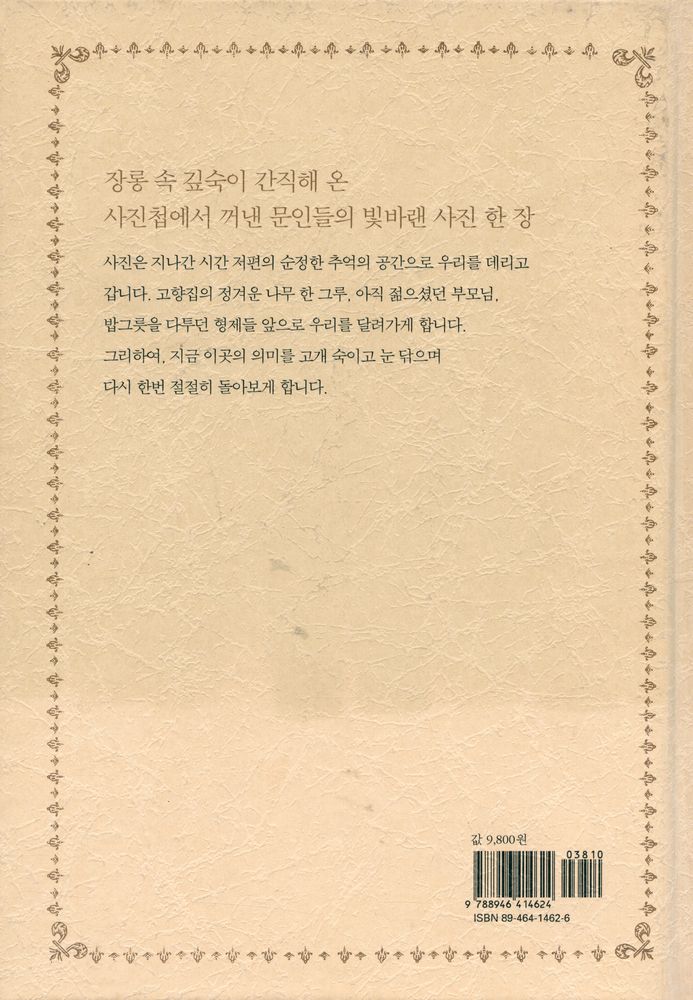 장롱 속 깊숙이 간직해 온
사진첩에서 꺼낸 문인들의 빛바랜 사진 한 장
사진은 지나간 시간 저편의 순정한 추억의 공간으로 우리를 데리고
갑니다. 고향집의 정겨운 나무 한 그루, 아직 젊으셨던 부모님,
밥그릇을 다투던 형제들 앞으로 우리를 달려가게 합니다.
그리하여, 지금 이곳의 의미를 고개 숙이고 눈 닦으며
다시 한번 절절히 돌아보게 합니다.
값 9,800원
03810
9 788946 414624
ISBN 89-464-1462-6